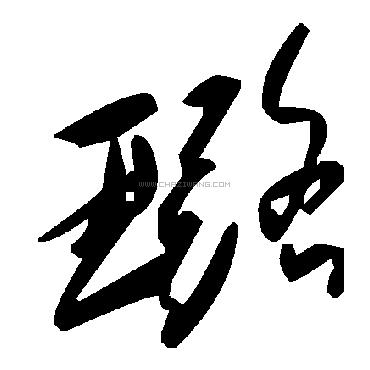 璐
WWW.CHAZIWANG.COM